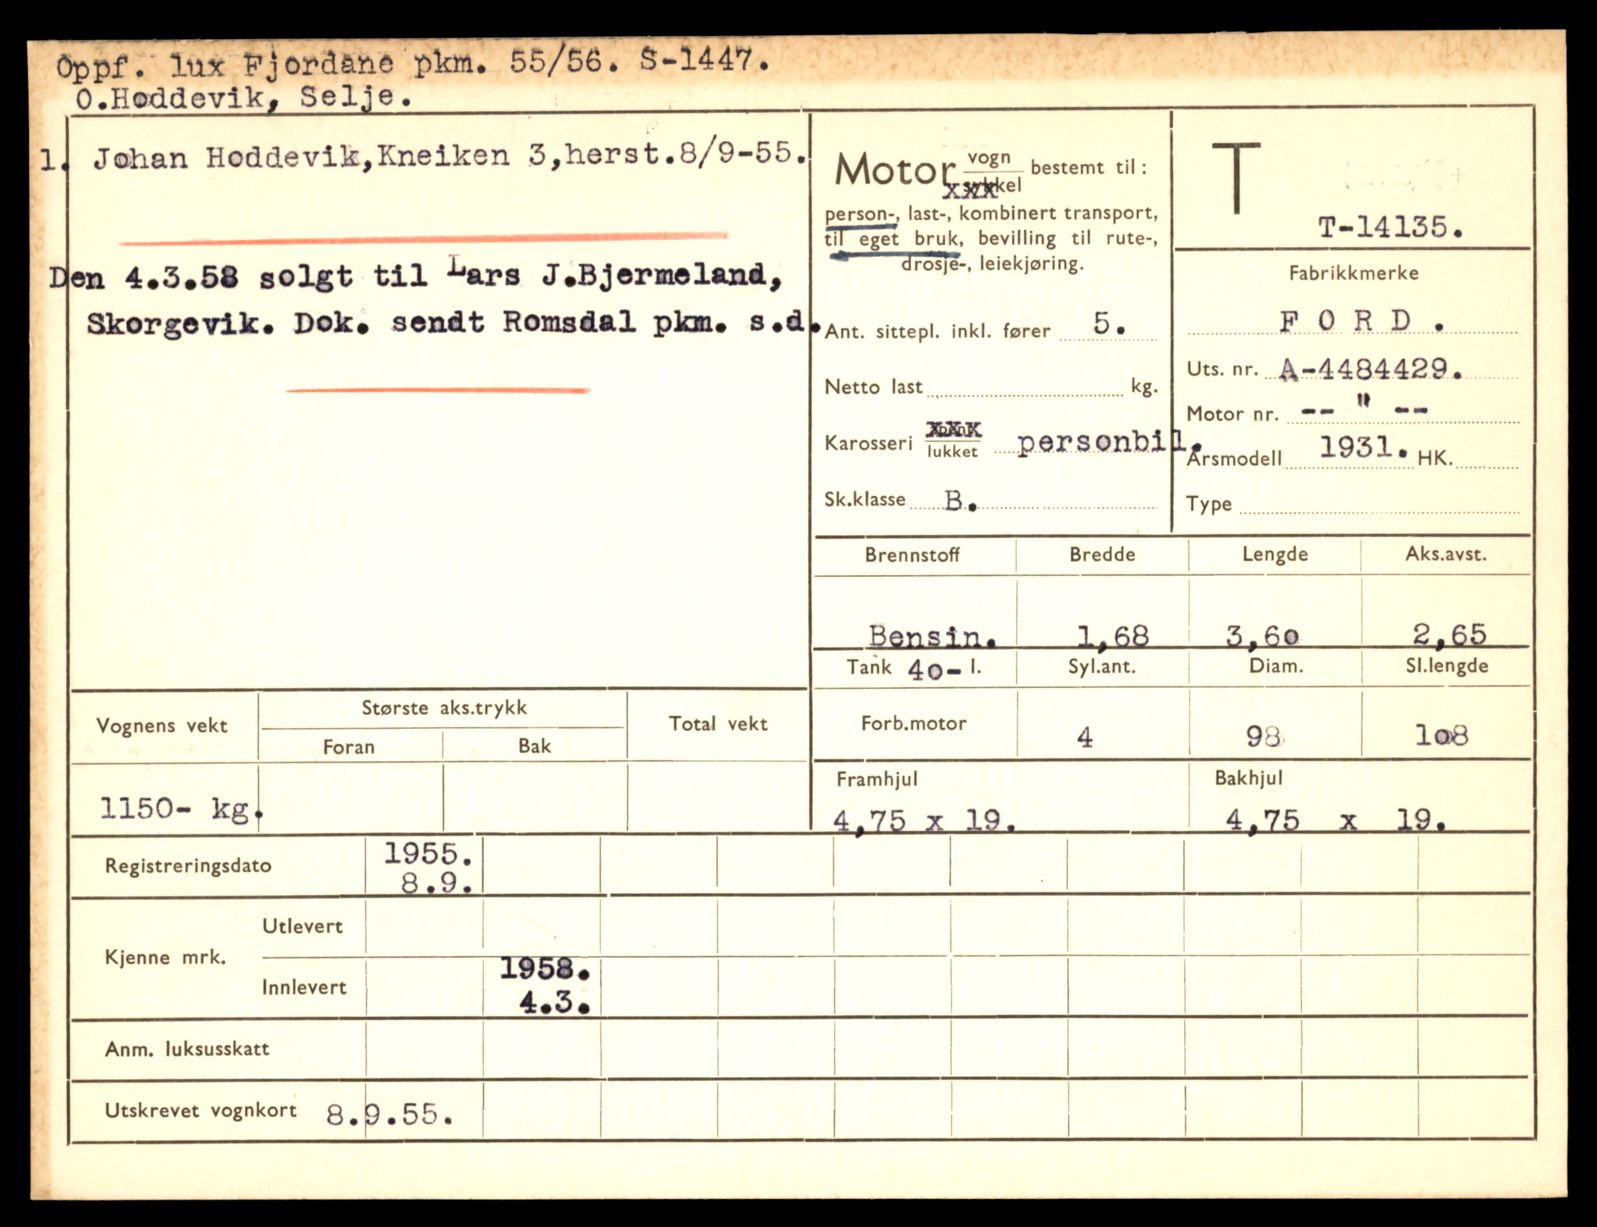 Oppf. lux Fjordane pkm. 55/56. S-1447.
O.Hoddevik, Selje.
1. Johan Hoddevik,Kneiken 3,herst.8/9-55.
Den 4.3.58 solgt til Lars J.Bjermeland,
Skorgevik. Dok. sendt Romsdal pkm. s.d.
Motor vogn bestemt til:
xxxkel
person-, last-, kombinert transport,
til eget bruk, bevilling til rute-,
drosje-, leiekjøring.
Ant. sittepl. inkl. fører 5.
Netto last kg.
Karosseri xxx
lukket personbil.
Sk.klasse B.
T
T-14135.
Fabrikkmerke
F O R D .
Uts. nr. A-4484429.
Motor nr. -- " --
Årsmodell 1931. HK.
Type
Brennstoff Bredde Lengde Aks.avst.
Bensin. 1,68 3,60 2,65
Tank 40- l. Syl.ant. Diam. Sl.lengde
Forb.motor 4 98 108
Framhjul Bakhjul
4,75 x 19. 4,75 x 19.
Vognens vekt Største aks.trykk Total vekt
Foran Bak
1150- kg.
Registreringsdato 1955.
8.9.
Kjenne mrk. Utlevert
Innlevert 1958.
4.3.
Anm. luksusskatt
Utskrevet vognkort 8.9.55.